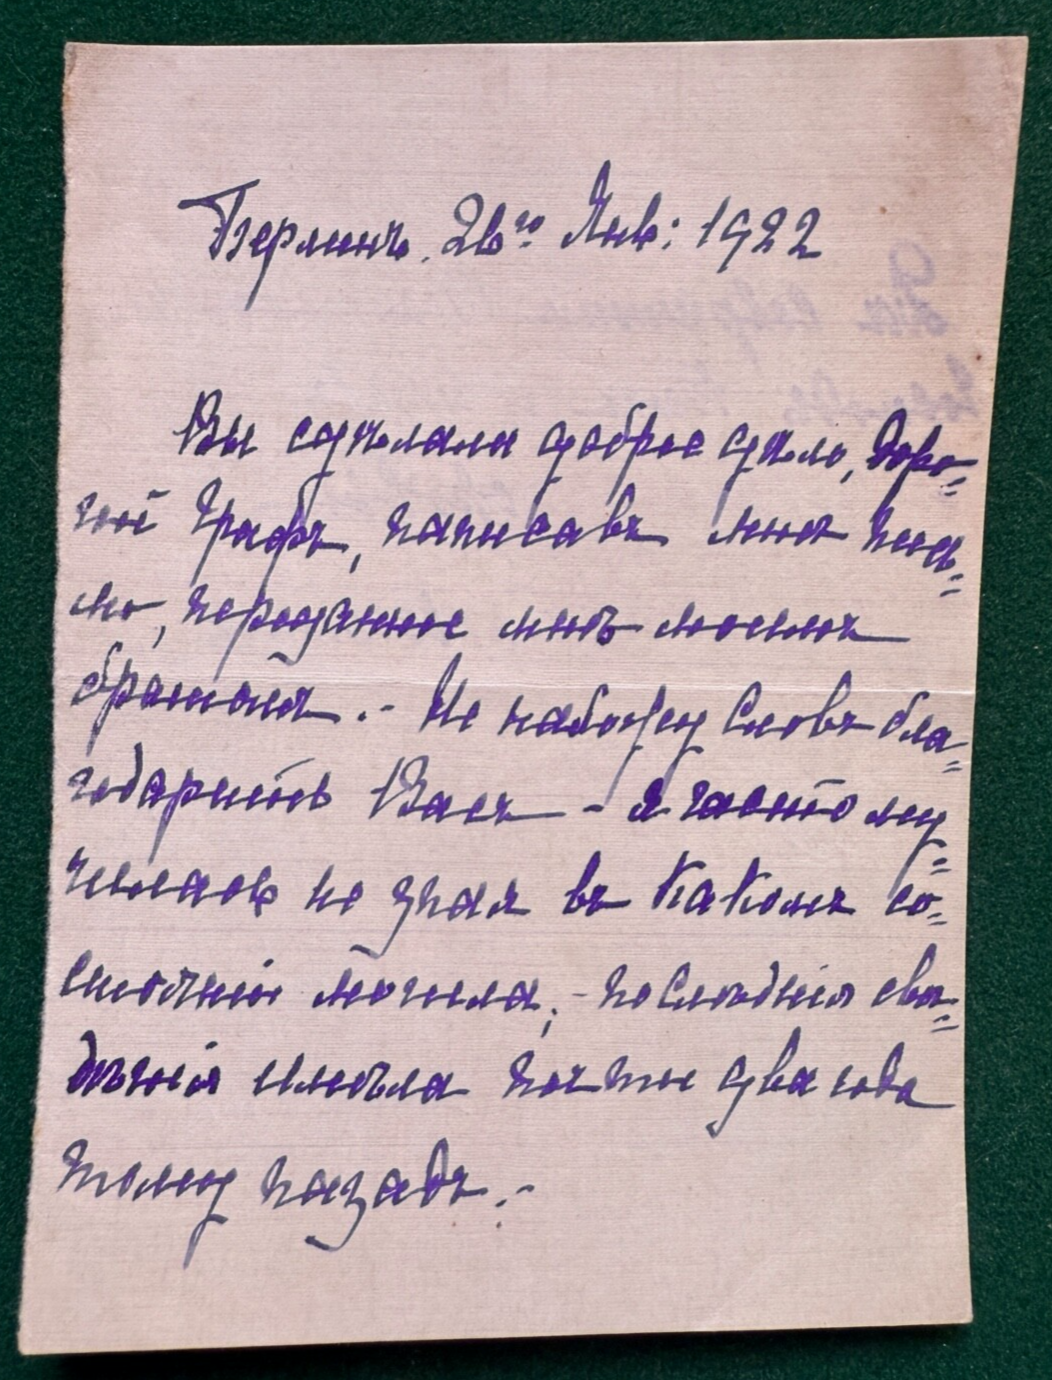 Берлинъ. 26го Янв: 1922
Вы сдѣлали доброе дѣло, доро=
гой Графъ, написавъ мнѣ пись=
мо, переданное мнѣ моимъ
братомъ. - Не нахожу словъ бла=
годарить Васъ - я часто му=
чилась не зная въ какомъ со=
стоянiи могила, - послѣднiя свѣ=
дѣнiя имѣла почти два года
тому назадъ. -